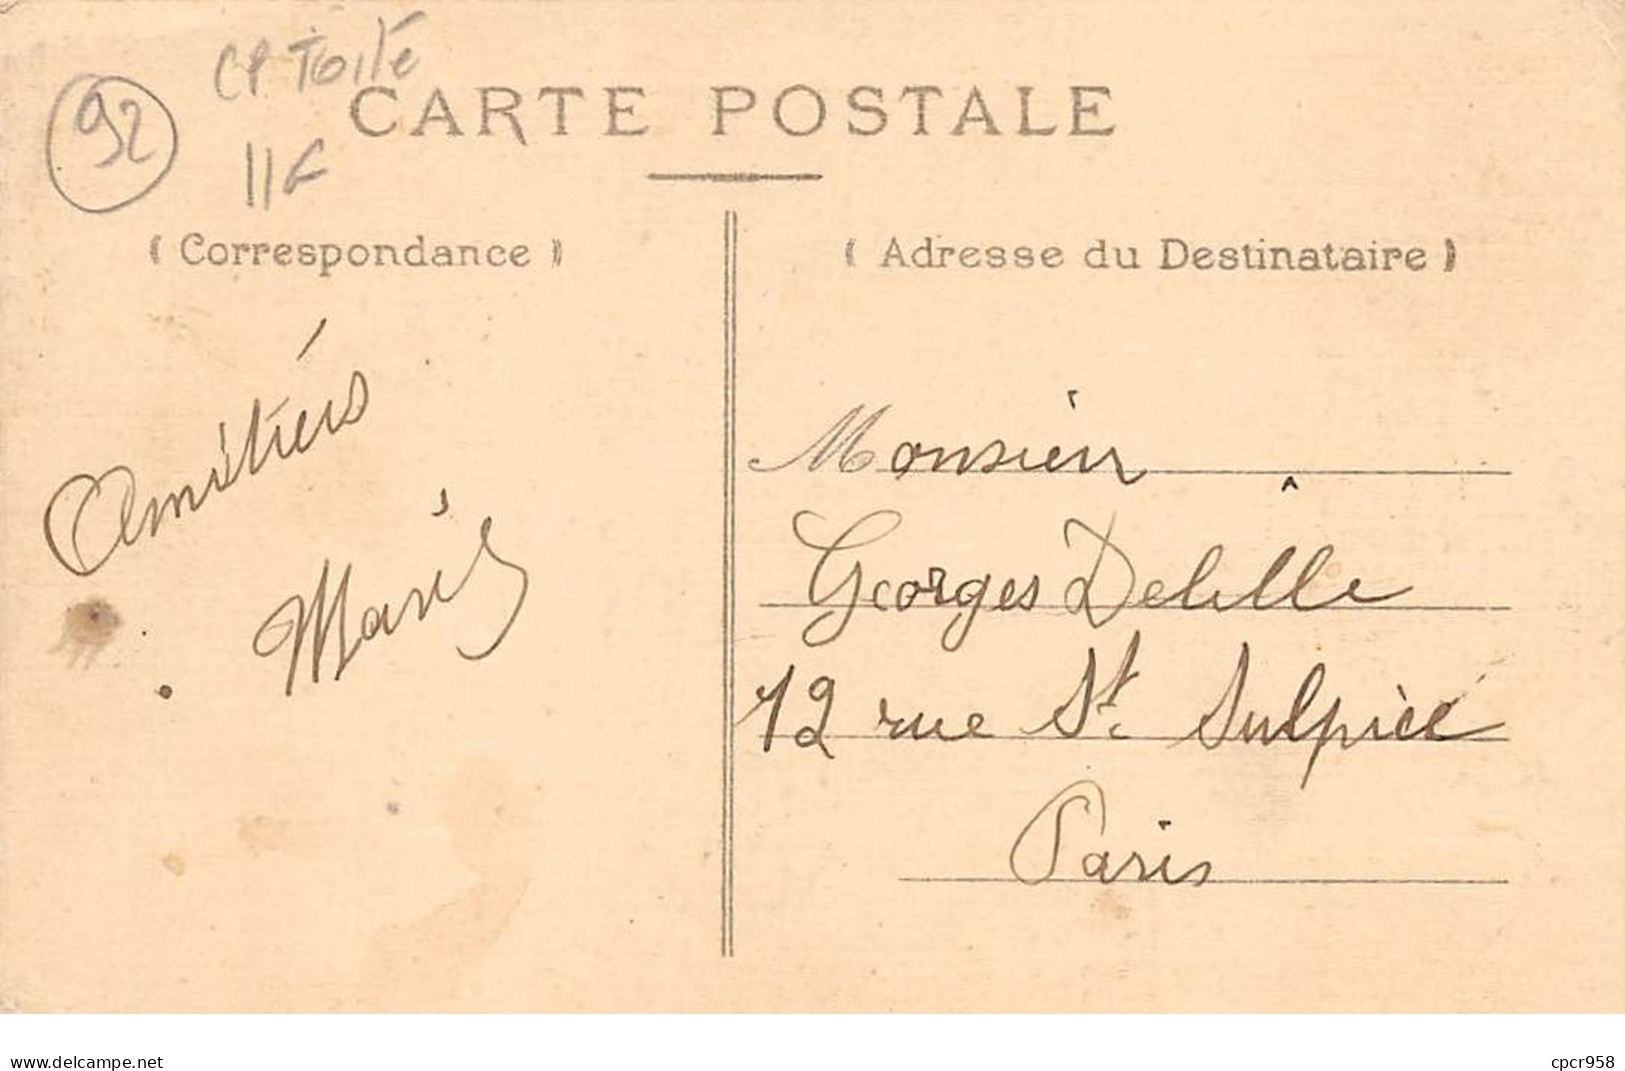 CP Toilé
92
11F
CARTE POSTALE
( Correspondance )
( Adresse du Destinataire )
Amitiés
Marie
Monsieur
Georges Delille
12 rue St. Sulpice
Paris
www.delcampe.net
cpcr958